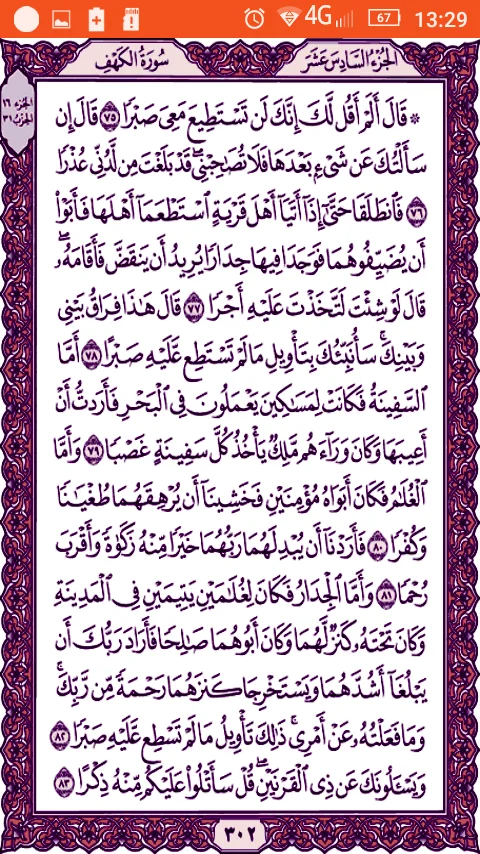 4G 67 13:29
سُورَةُ الكَهْفِ
الجُزْءُ السَّادِسَ عَشَرَ
الجزء ١٦
الحزب ٣١
۞ قَالَ أَلَمْ أَقُل لَّكَ إِنَّكَ لَن تَسْتَطِيعَ مَعِىَ صَبْرًا ٧٥ قَالَ إِن
سَأَلْتُكَ عَن شَىْءٍۭ بَعْدَهَا فَلَا تُصَٰحِبْنِى ۖ قَدْ بَلَغْتَ مِن لَّدُنِّى عُذْرًا
٧٦ فَٱنطَلَقَا حَتَّىٰٓ إِذَآ أَتَيَآ أَهْلَ قَرْيَةٍ ٱسْتَطْعَمَآ أَهْلَهَا فَأَبَوْا۟
أَن يُضَيِّفُوهُمَا فَوَجَدَا فِيهَا جِدَارًا يُرِيدُ أَن يَنقَضَّ فَأَقَامَهُۥ ۖ
قَالَ لَوْ شِئْتَ لَتَّخَذْتَ عَلَيْهِ أَجْرًا ٧٧ قَالَ هَٰذَا فِرَاقُ بَيْنِى
وَبَيْنِكَ ۚ سَأُنَبِّئُكَ بِتَأْوِيلِ مَا لَمْ تَسْتَطِع عَّلَيْهِ صَبْرًا ٧٨ أَمَّا
ٱلسَّفِينَةُ فَكَانَتْ لِمَسَٰكِينَ يَعْمَلُونَ فِى ٱلْبَحْرِ فَأَرَدتُّ أَنْ
أَعِيبَهَا وَكَانَ وَرَآءَهُم مَّلِكٌ يَأْخُذُ كُلَّ سَفِينَةٍ غَصْبًا ٧٩ وَأَمَّا
ٱلْغُلَٰمُ فَكَانَ أَبَوَاهُ مُؤْمِنَيْنِ فَخَشِينَآ أَن يُرْهِقَهُمَا طُغْيَٰنًا
وَكُفْرًا ٨٠ فَأَرَدْنَآ أَن يُبْدِلَهُمَا رَبُّهُمَا خَيْرًا مِّنْهُ زَكَوٰةً وَأَقْرَبَ
رُحْمًا ٨١ وَأَمَّا ٱلْجِدَارُ فَكَانَ لِغُلَٰمَيْنِ يَتِيمَيْنِ فِى ٱلْمَدِينَةِ
وَكَانَ تَحْتَهُۥ كَنزٌ لَّهُمَا وَكَانَ أَبُوهُمَا صَٰلِحًا فَأَرَادَ رَبُّكَ أَن
يَبْلُغَآ أَشُدَّهُمَا وَيَسْتَخْرِجَا كَنزَهُمَا رَحْمَةً مِّن رَّبِّكَ ۚ
وَمَا فَعَلْتُهُۥ عَنْ أَمْرِى ۚ ذَٰلِكَ تَأْوِيلُ مَا لَمْ تَسْطِع عَّلَيْهِ صَبْرًا ٨٢
وَيَسْـَٔلُونَكَ عَن ذِى ٱلْقَرْنَيْنِ ۖ قُلْ سَأَتْلُوا۟ عَلَيْكُم مِّنْهُ ذِكْرًا ٨٣
٣٠٢